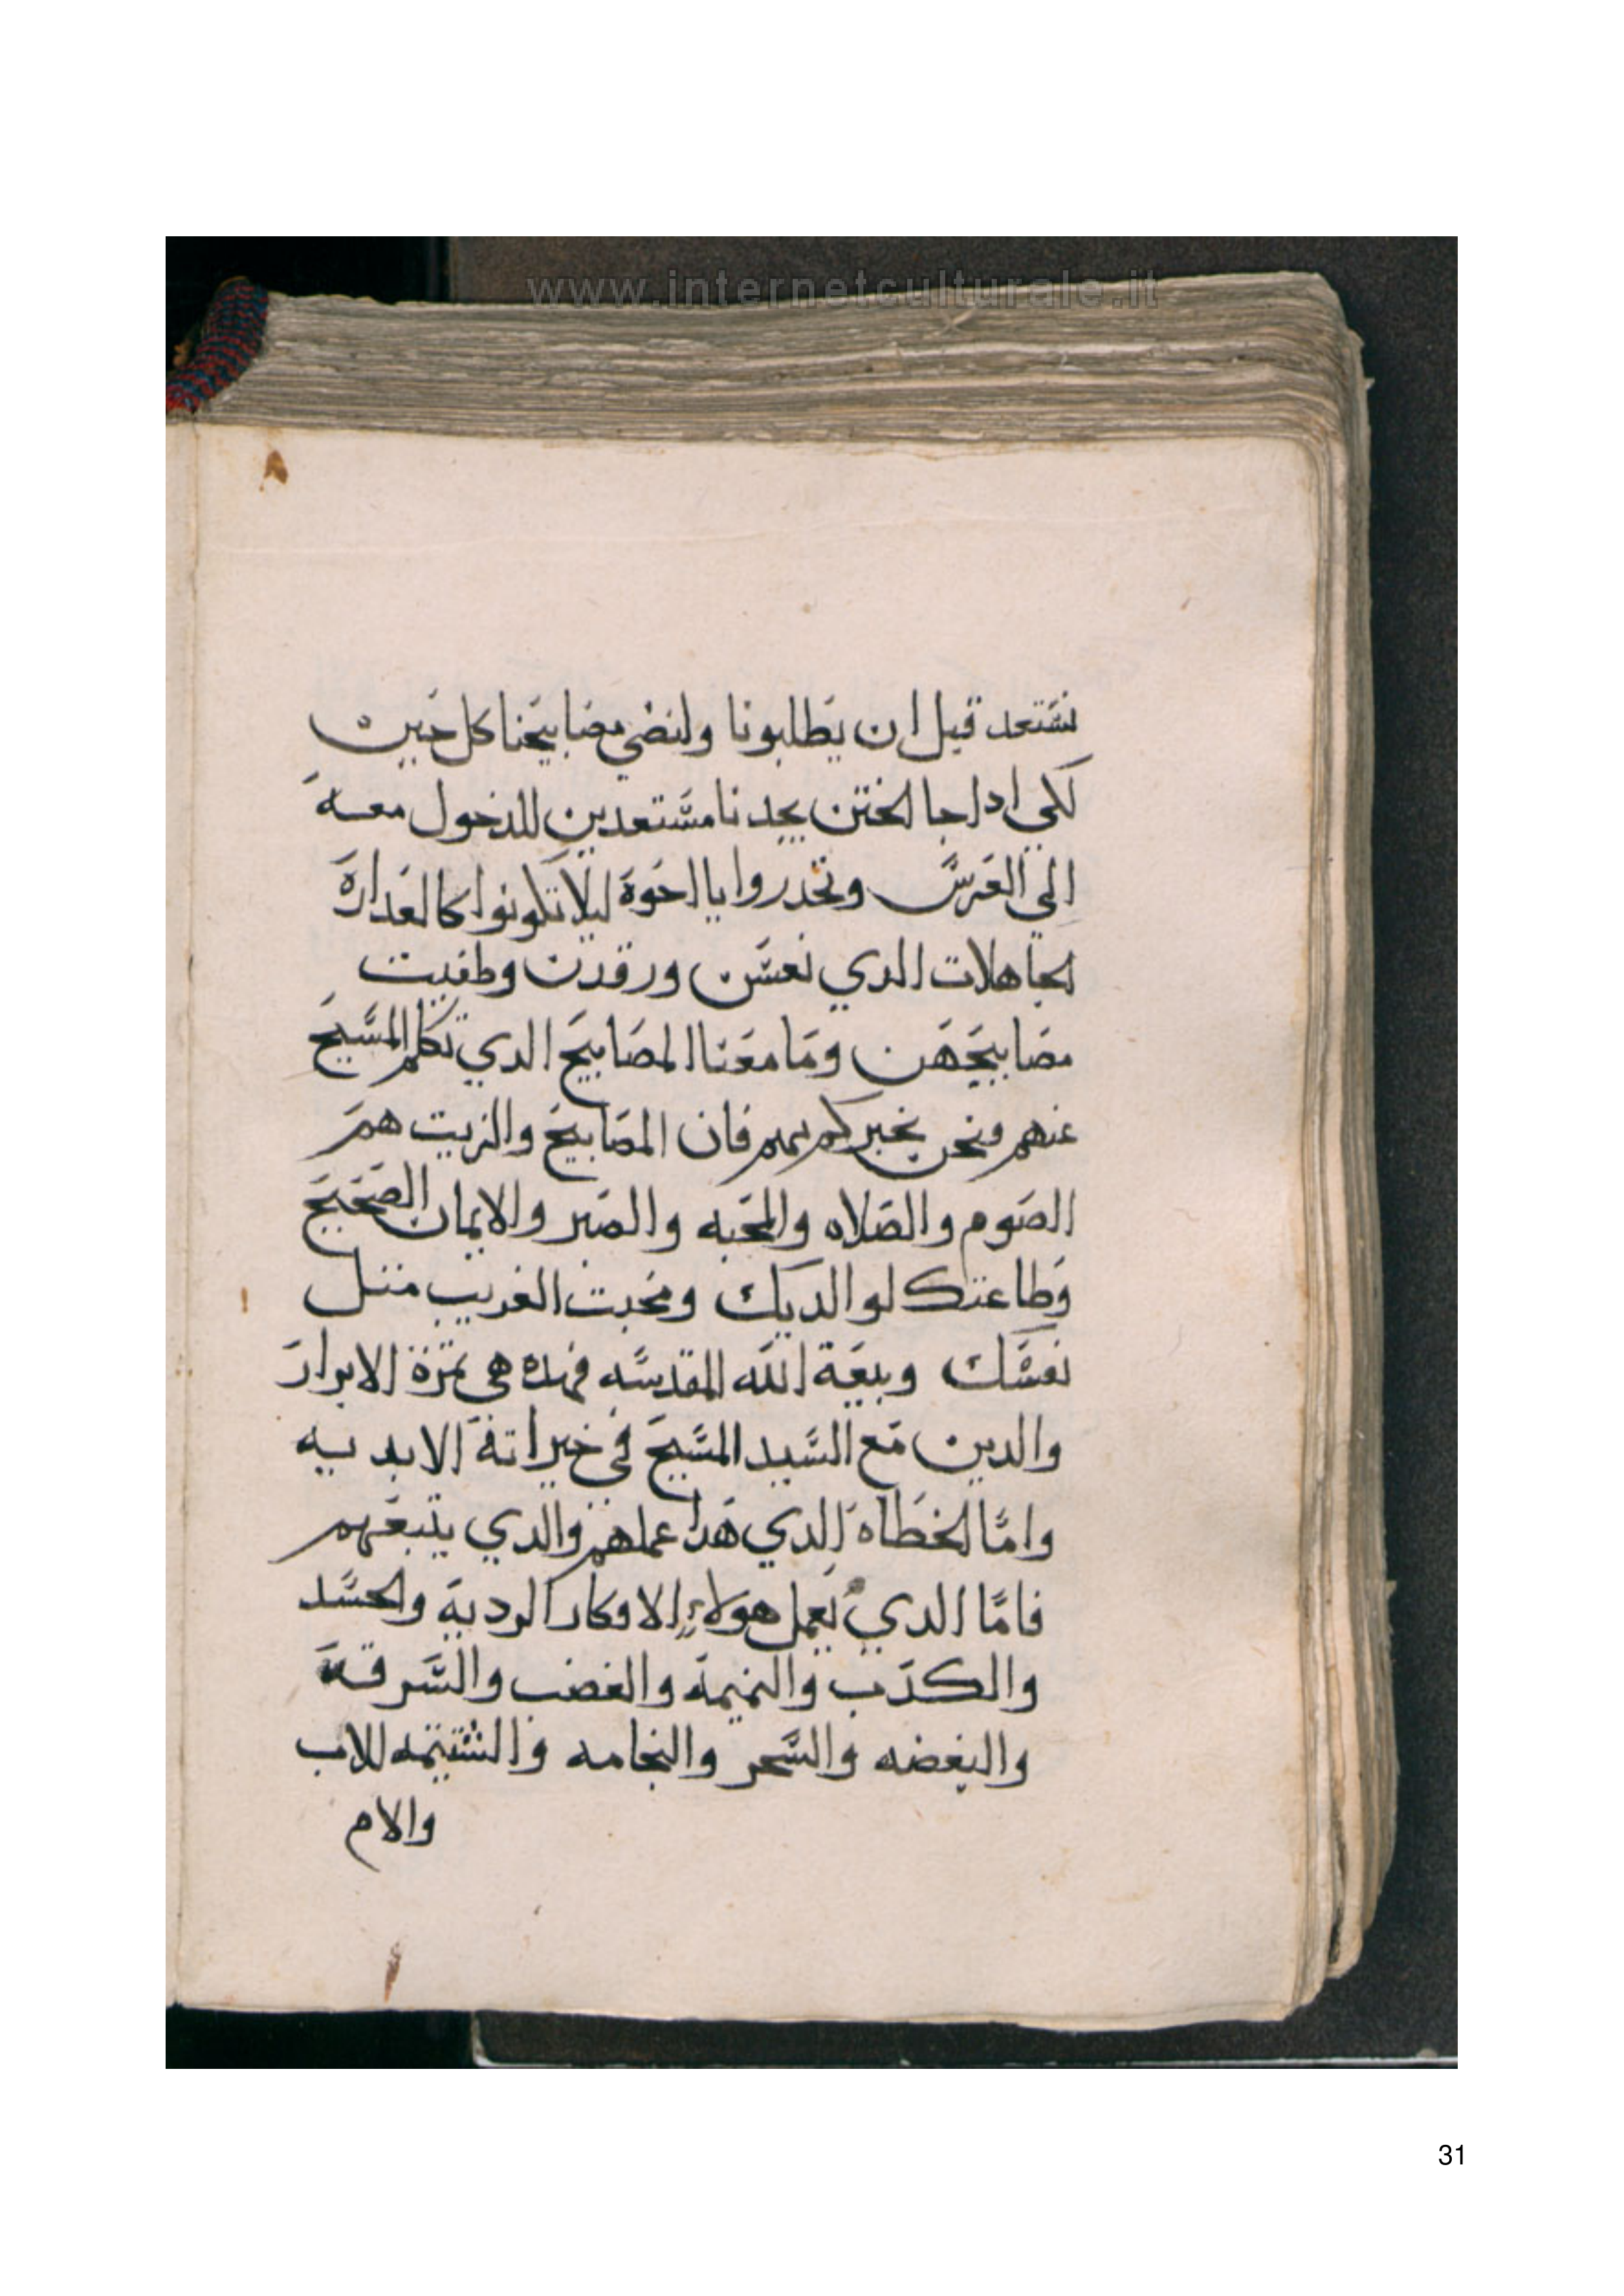 www.internetculturale.it
نستعد قبل ان يطلبونا ولنضي مصابيحنا كل حين
لكي ادا جا الختن يجدنا مستعدين للدخول معه
الي العرس وتحدروا يا اخوة ليلا تكونوا كالعداره
الجاهلات الدي نعسن ورقدن وطفيت
مصابيحهن وما معنا المصابيح الدي تكلم المسيح
عنهم ونحن نخبركم بهم فان المصابيح والزيت هم
الصوم والصلاه والمحبه والصبر والايمان الصحيح
وطاعتك لوالديك ومحبت الغريب متل
نفسك وبيعة الله المقدسه فهده هي تمرة الابرار
والدين مع السيد المسيح في خيراته الابديه
واما الخطاه الدي هدا عملهم والدي يتبعهم
فاما الدي يعمل هولاء الافكار الرديه والحسد
والكدب والنميمة والغضب والسرقة
والبغضه والسحر والنجامه والشتيمه للاب
والام
31